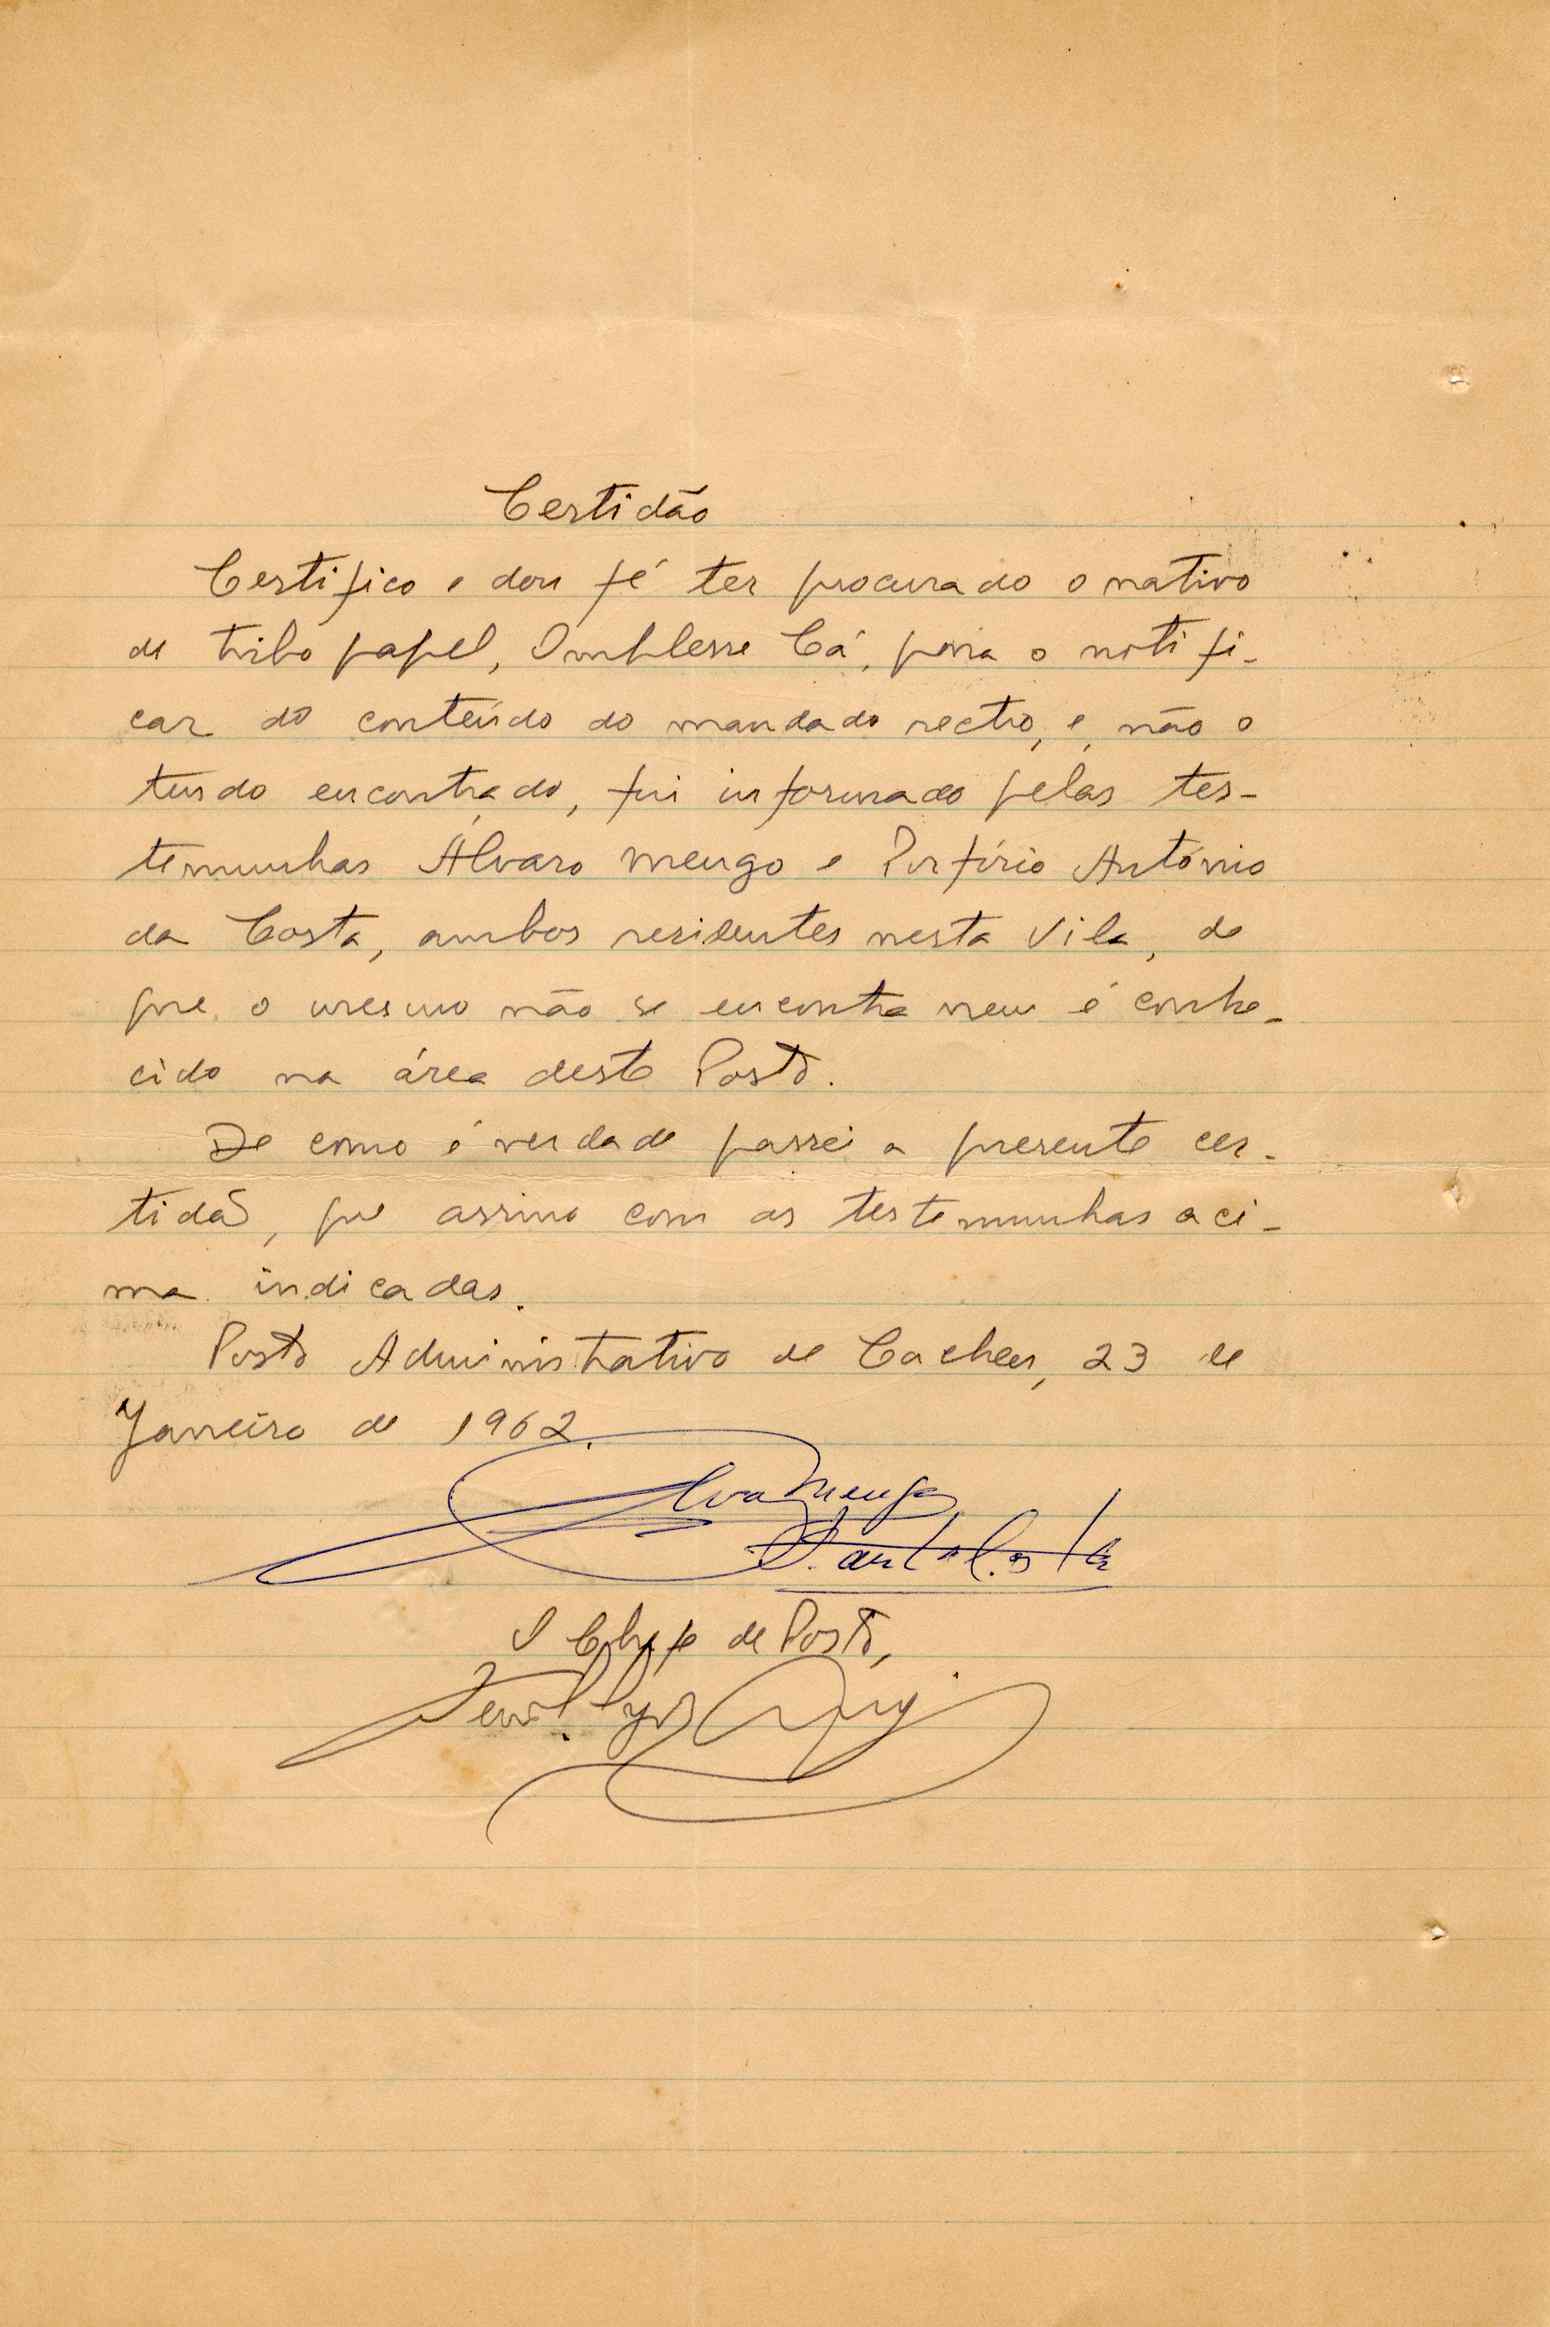 Certidão
Certifico e dou fé ter procurado o nativo
de tribo papel, Cá, para o notifi-
car do conteúdo do mandado recto, e, não o
tendo encontrado, fui informado pelas tes-
temunhas Álvaro Mengo e Porfírio António
da Costa, ambos residentes nesta Vila, de
que o mesmo não se encontra nem é conhe-
cido na área deste Posto.
De como é verdade passei a presente cer-
tidão, que assino com as testemunhas aci-
ma indicadas.
Posto Administrativo de Cacheu, 23 de
Janeiro de 1962.
O Chefe de Posto,